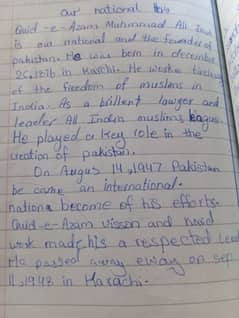 our national
Quid-e-Azam Muhammad Ali
is our national and the founder of
pakistan. He was born in december
25,1876 in Karchi. He
of the freedom of muslems in
India. As a brillent lawyer and
leader All India muslims
He played a key role in the
creation of pakistan.
On Augus 14,1947 Pakistan
be came an international.
nation become of his efforts.
Quid-e-Azam visson and hard
work made his a respected
He passed away eway on sep
11,1948 in Karachi.